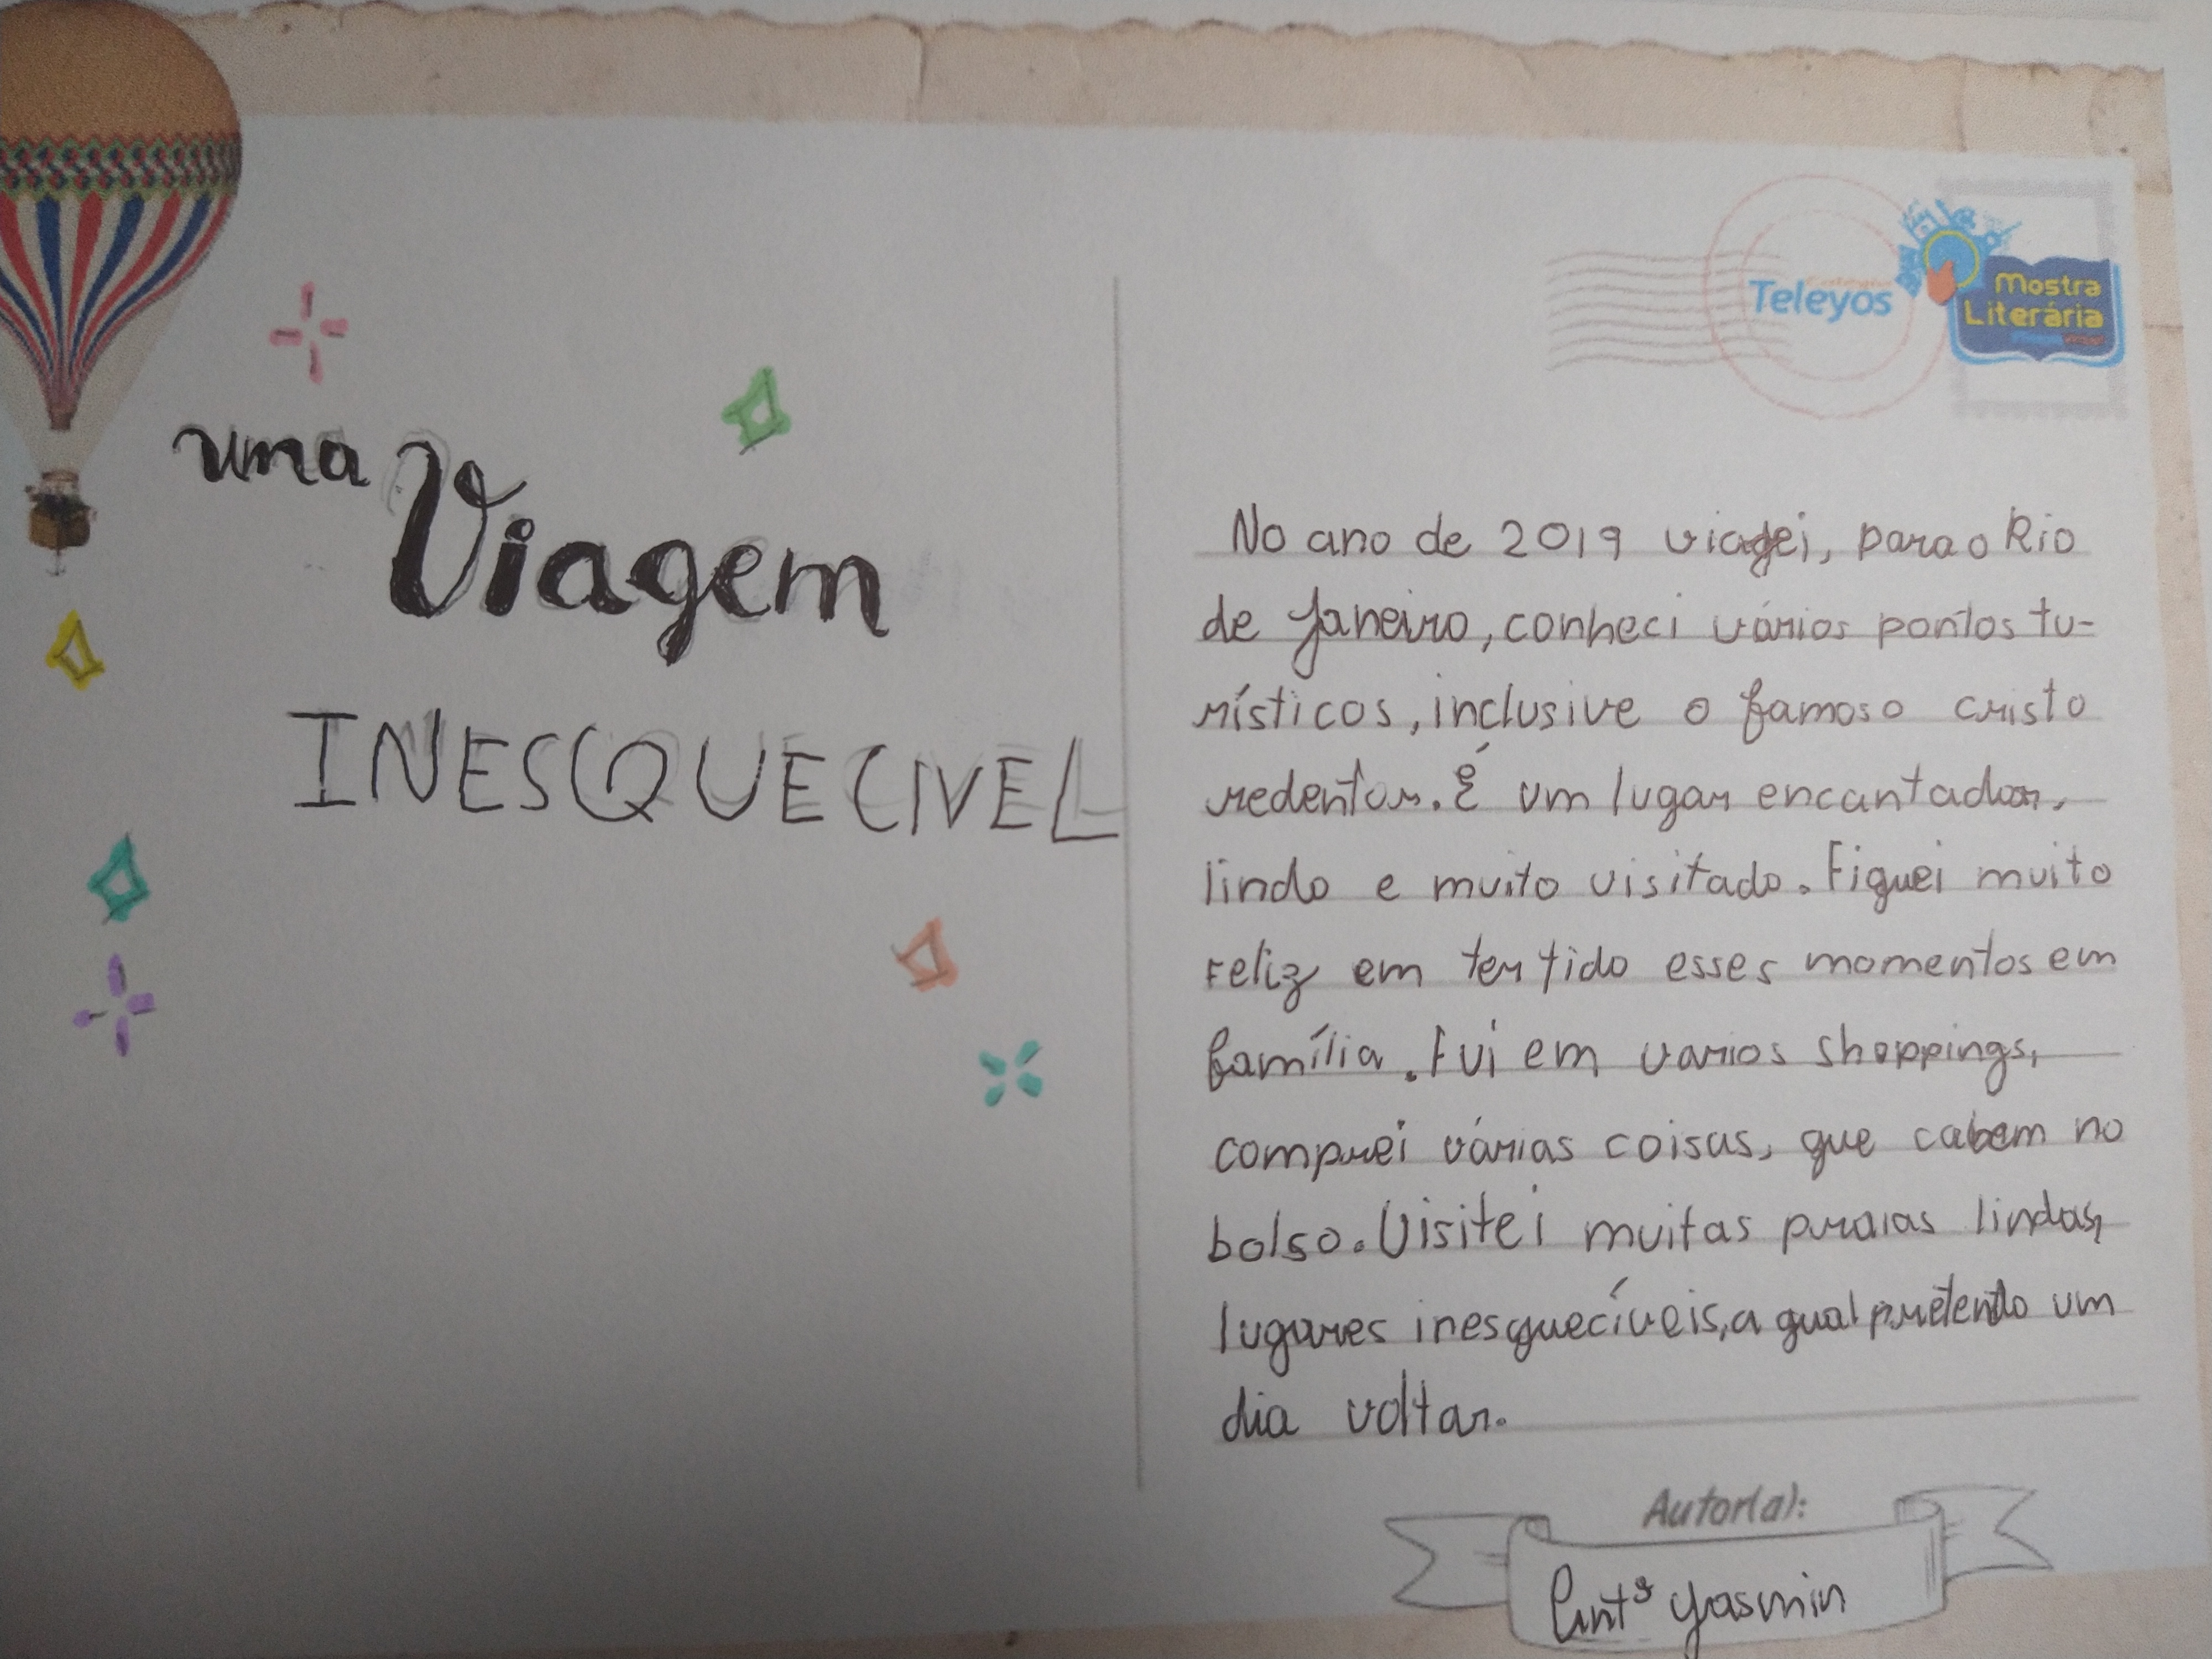 uma
Viagem
INESQUECIVEL
Teleyos
Mostra
Literária
No ano de 2019 viagei, para o Rio
de Janeiro, conheci vários pontos tu-
rísticos, inclusive o famoso cristo
redentor. É um lugar encantador,
lindo e muito visitado. Fiquei muito
Feliz em ter tido esses momentos em
família. Fui em varios shoppings,
comprei várias coisas, que cabem no
bolso. Visitei muitas praias lindas,
lugares inesquecíveis, a qual pretendo um
dia voltar.
Autor(a):
Antª Yasmin